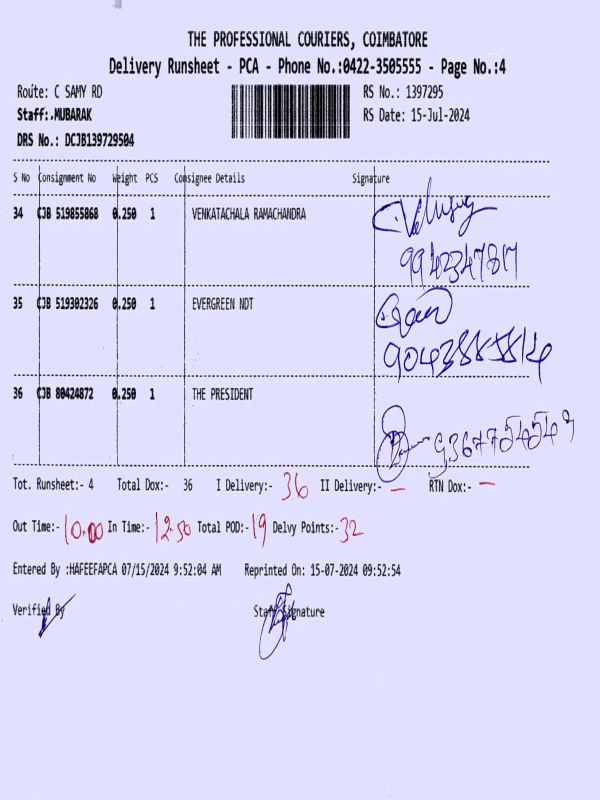 THE PROFESSIONAL COURIERS, COIMBATORE
Delivery Runsheet - PCA - Phone No.:0422-3505555 - Page No.:4
Route: C SAMY RD RS No.: 1397295
Staff:.MUBARAK RS Date: 15-Jul-2024
DRS No.: DCJB139729504
S No Consignment No Weight PCS Consignee Details Signature
34 CJB 519855868 0.250 1 VENKATACHALA RAMACHANDRA
9942347817
35 CJB 519302326 0.250 1 EVERGREEN NDT
36 CJB 80424872 0.250 1 THE PRESIDENT
Tot. Runsheet:- 4 Total Dox:- 36 I Delivery:- 36 II Delivery:- — RTN Dox:- —
Out Time:- 10.00 In Time:- 12.50 Total POD:- 19 Delvy Points:- 32
Entered By :HAFEEFAPCA 07/15/2024 9:52:04 AM Reprinted On: 15-07-2024 09:52:54
Verified By Staff Signature